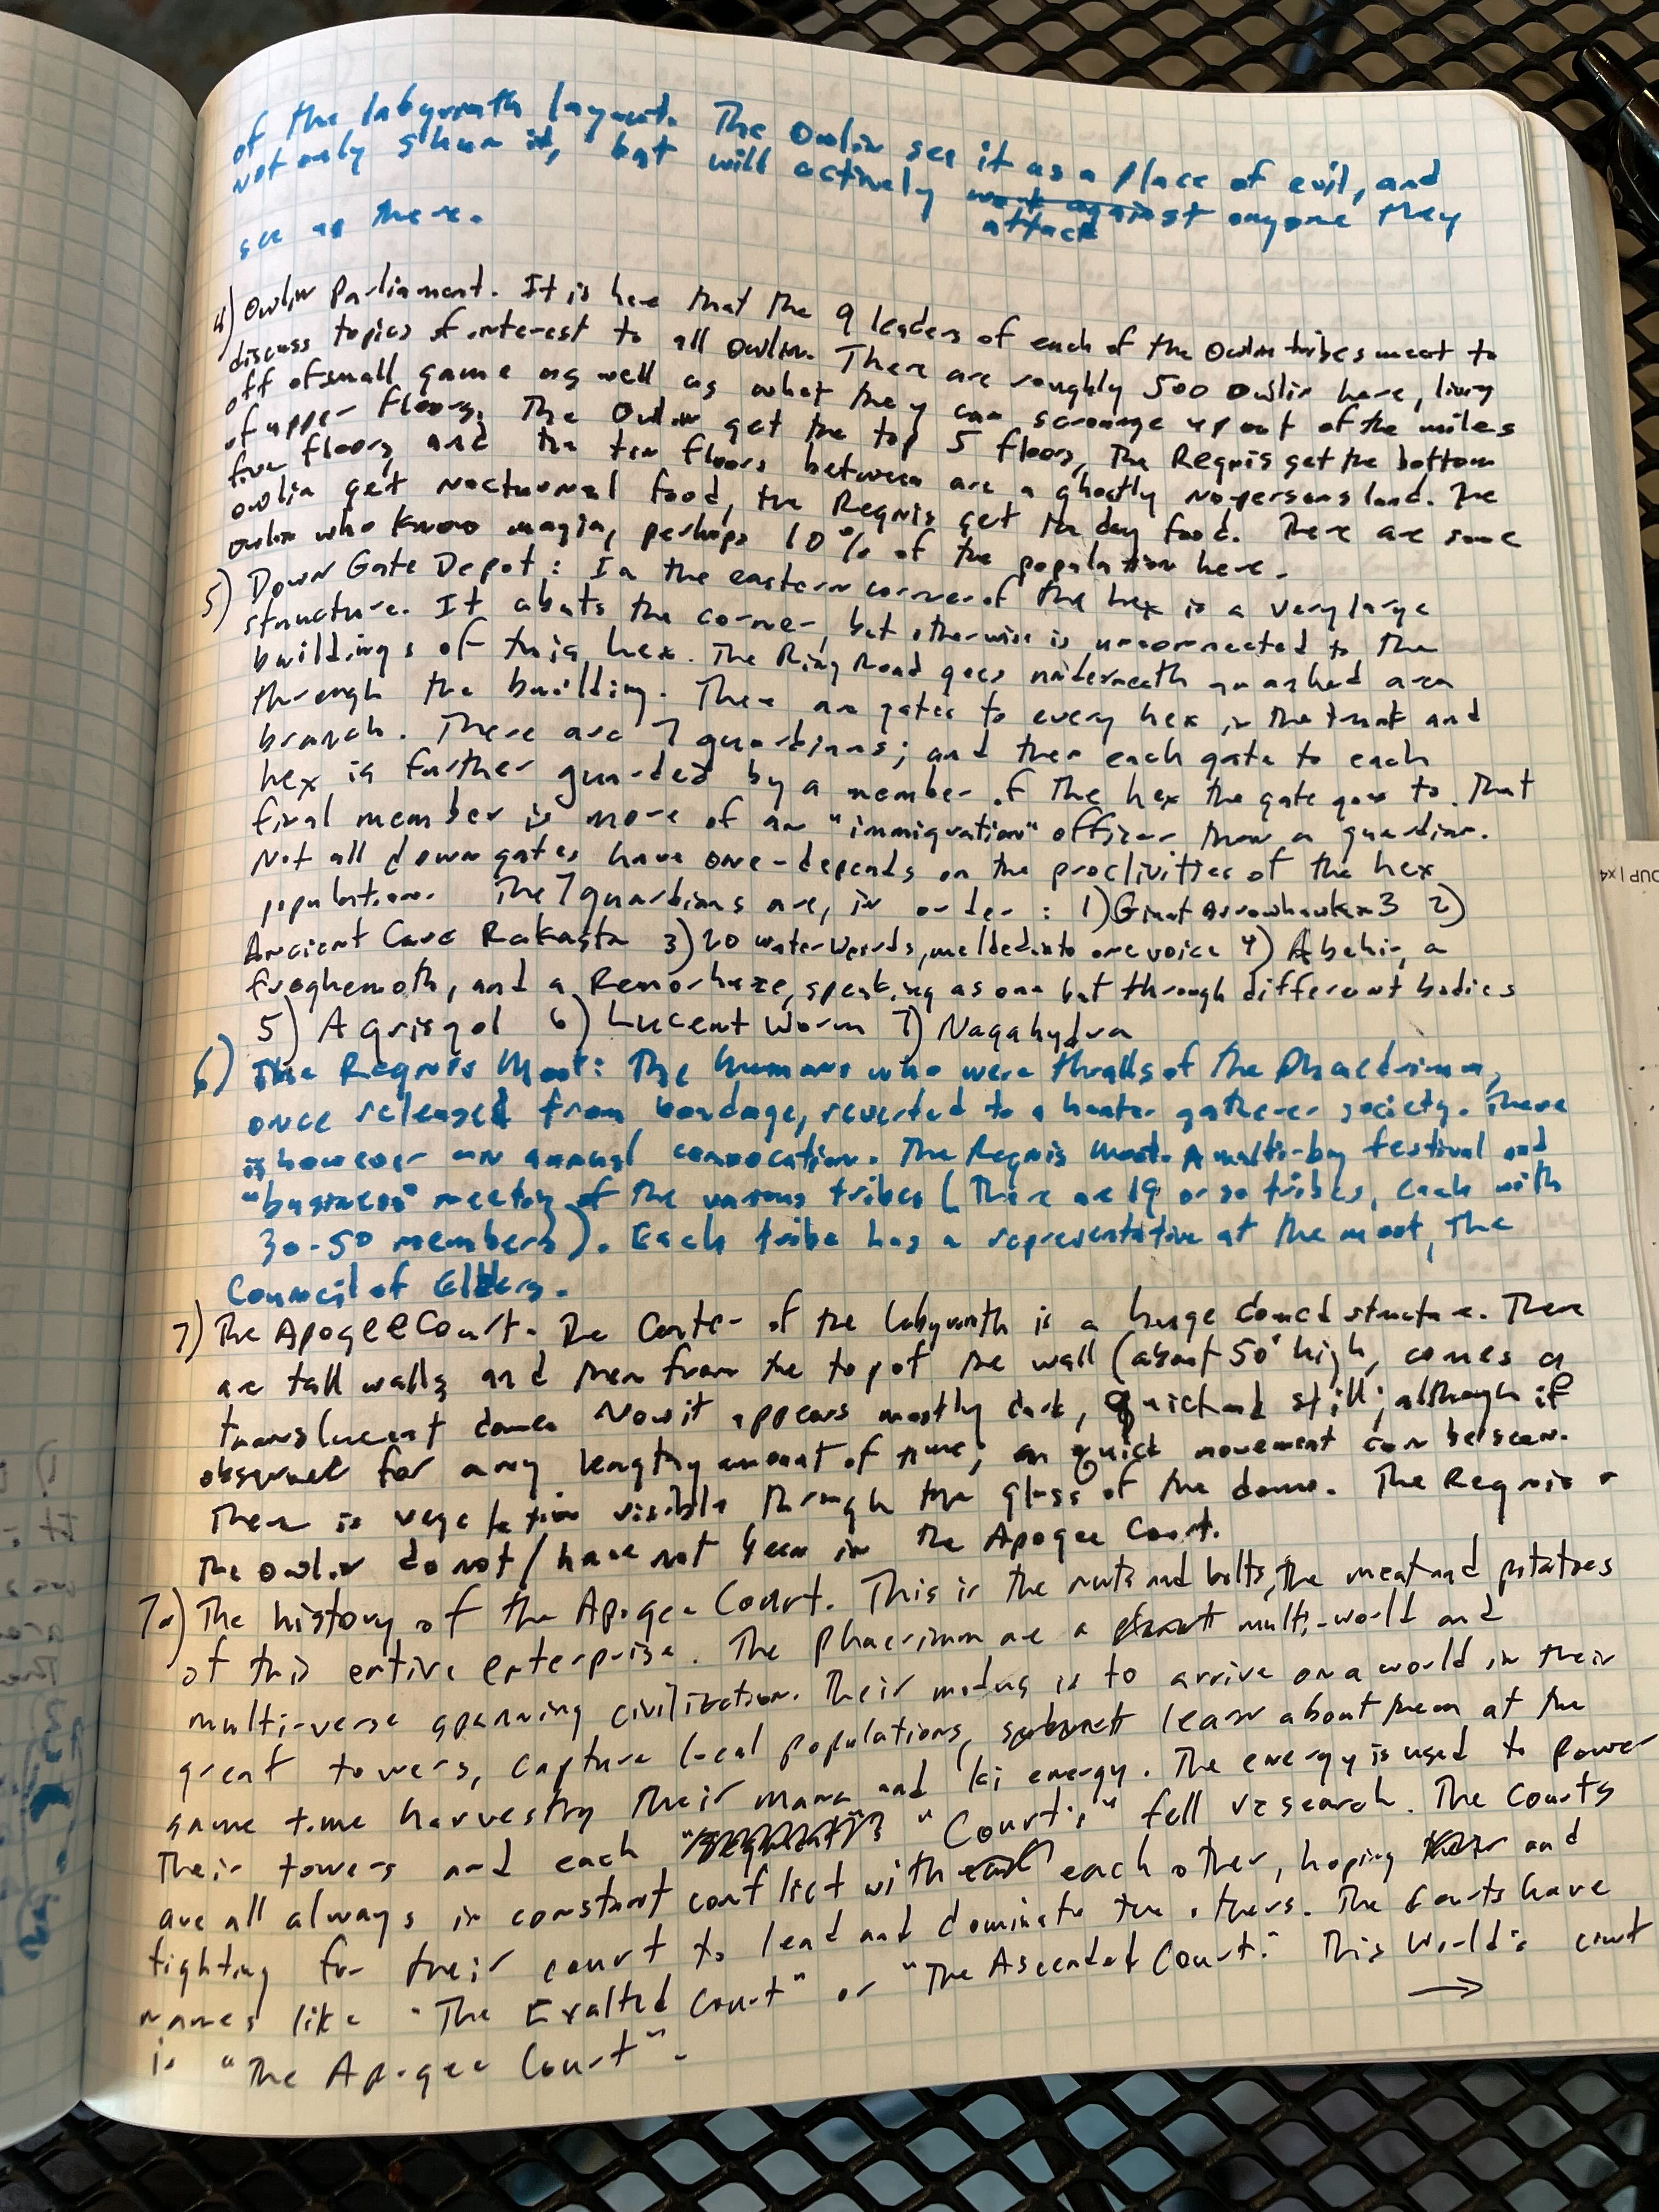 of the labyrinth layout. The Owlin see it as a place of evil, and
not only shun it, but will actively attack anyone they
see there.
4) Owlin Parliament. It is here that the 9 leaders of each of the Owlin tribes meet to
discuss topics of interest to all Owlin. There are roughly 500 Owlin here, living
off of small game as well as what they can scrounge up out of the miles
of upper floors. The Owlin get the top 5 floors, The Regnis get the bottom
five floors, and the ten floors between are a ghostly no persons land. The
owlin get nocturnal food, the Regnis get the day food. There are some
Owlin who know magic, perhaps 10% of the population here.
5) Down Gate Depot: In the eastern corner of the hex is a very large
structure. It abuts the corner, but otherwise is unconnected to the
buildings of this hex. The Ring Road goes underneath an arched area
through the building. There are gates to every hex in the trunk and
branch. There are 7 guardians; and then each gate to each
hex is further guarded by a member of the hex the gate goes to. That
final member is more of an "immigration" officer than a guardian.
Not all down gates have one - depends on the proclivities of the hex
population. The 7 guardians are, in order: 1) Giant Arrowhawk x3 2)
Ancient Cave Rakasta 3) 20 water weirds, melded into one voice 4) A behir, a
froghemoth, and a Remorhaze, speaking as one but through different bodies
5) A grisgol 6) Lucent Worm 7) Nagahydra
6) The Regnis Moot: The humans who were thralls of the Phaedrimm,
once released from bondage, reverted to a hunter gatherer society. There
is however an annual convocation. The Regnis Moot. A multi-day festival and
"business" meeting of the various tribes (There are 19 or so tribes, each with
30-50 members). Each tribe has a representative at the moot, The
Council of Elders.
7) The Apogee Court. The Center of the labyrinth is a huge domed structure. There
are tall walls and then from the top of the wall (about 50' high, comes a
translucent dome. Now it appears mostly dark, quiet and still; although if
observed for any lengthy amount of time, quick movement can be seen.
There is vegetation visible through the glass of the dome. The Regnis +
The owlin do not/have not been in the Apogee Court.
7a) The history of the Apogee Court. This is the nuts and bolts, the meat and potatoes
of this entire enterprise. The Phaerimm are a multi-world and
multi-verse spanning civilization. Their modus is to arrive on a world in their
great towers, capture local populations, learn about them at the
same time harvesting their mana and ki energy. The energy is used to power
Their towers and each "Court's" fell research. The Courts
are all always in constant conflict with each other, hoping and
fighting for their court to lead and dominate the others. The Courts have
names like "The Exalted Court" or "The Ascendet Court." This World's court
is "The Apogee Court".
→